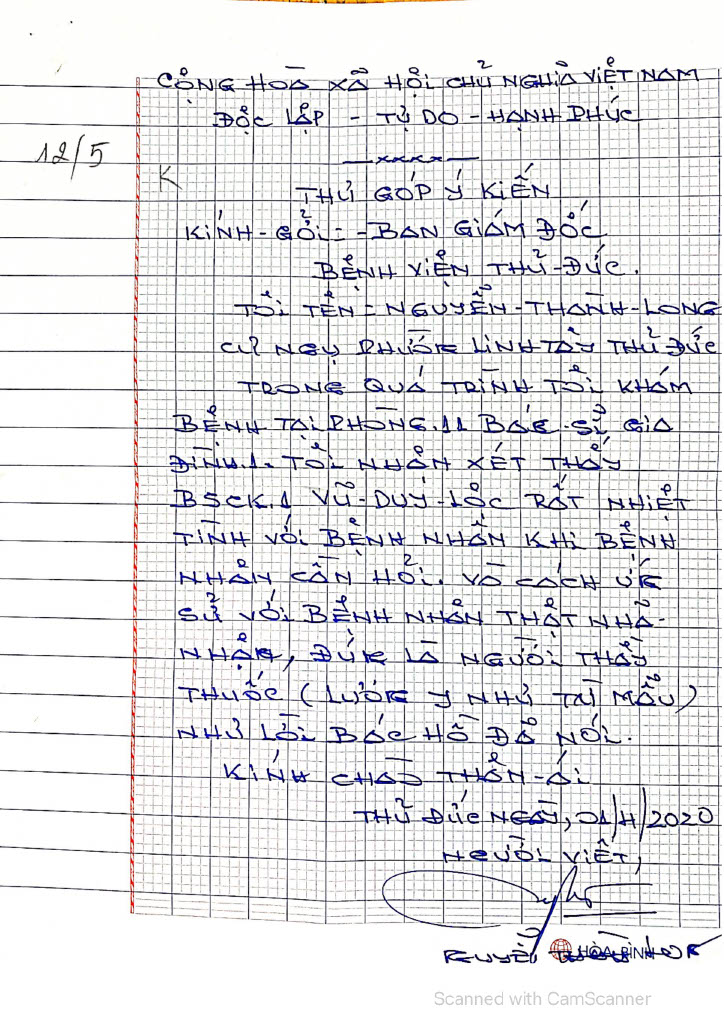 CỘNG HOÀ XÃ HỘI CHỦ NGHĨA VIỆT NAM
ĐỘC LẬP - TỰ DO - HẠNH PHÚC
12/5
—xxxx—
K
THƯ GÓP Ý KIẾN
KÍNH - GỞI = - BAN GIÁM ĐỐC
BỆNH VIỆN THỦ - ĐỨC.
TÔI TÊN = NGUYỄN - THÀNH - LONG
CƯ NGỤ PHƯỜNG LINH TÂY THỦ ĐỨC
TRONG QUÁ TRÌNH TÔI KHÁM
BỆNH TẠI PHÒNG.11 BÁC.SĨ GIA
ĐÌNH.1. TÔI NHẬN XÉT THẤY
BSCK.1 VŨ - DUY - LỘC RẤT NHIỆT
TÌNH VỚI BỆNH NHÂN KHI BỆNH
NHÂN CẦN HỎI. VÀ CÁCH ỨNG
SỬ VỚI BỆNH NHÂN THẬT NHÃ-
NHẶN, ĐÚNG LÀ NGƯỜI THẦY
THUỐC (LƯƠNG Y NHƯ TỪ MẪU)
NHƯ LỜI BÁC HỒ ĐÃ NÓI.
KÍNH CHÀO THÂN - ÁI
THỦ ĐỨC NGÀY, 01/4/2020
NGƯỜI VIẾT,
HÒA BÌNH
Scanned with CamScanner